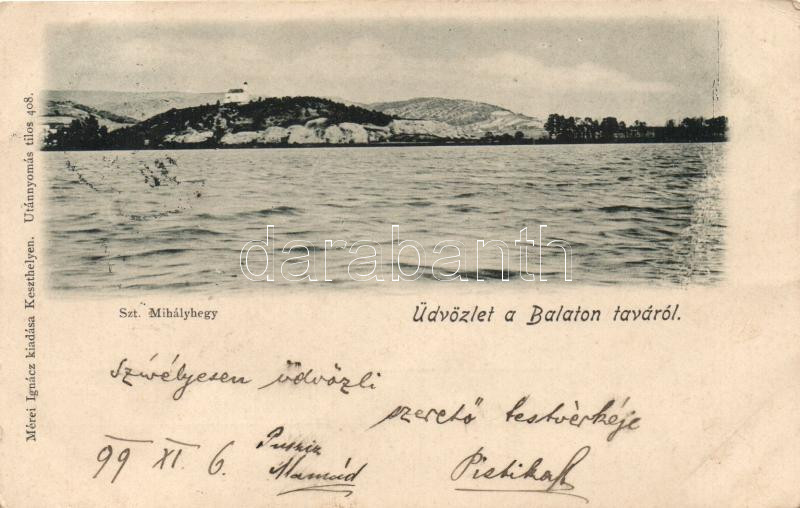 Mérei Ignácz kiadása Keszthelyen. Utánnyomás tilos 408.
darabanth
Szt. Mihályhegy
Üdvözlet a Balaton taváról.
Szívélyesen üdvözli
szerető testvérkéje
99 XI. 6.
Mamád
Pistika